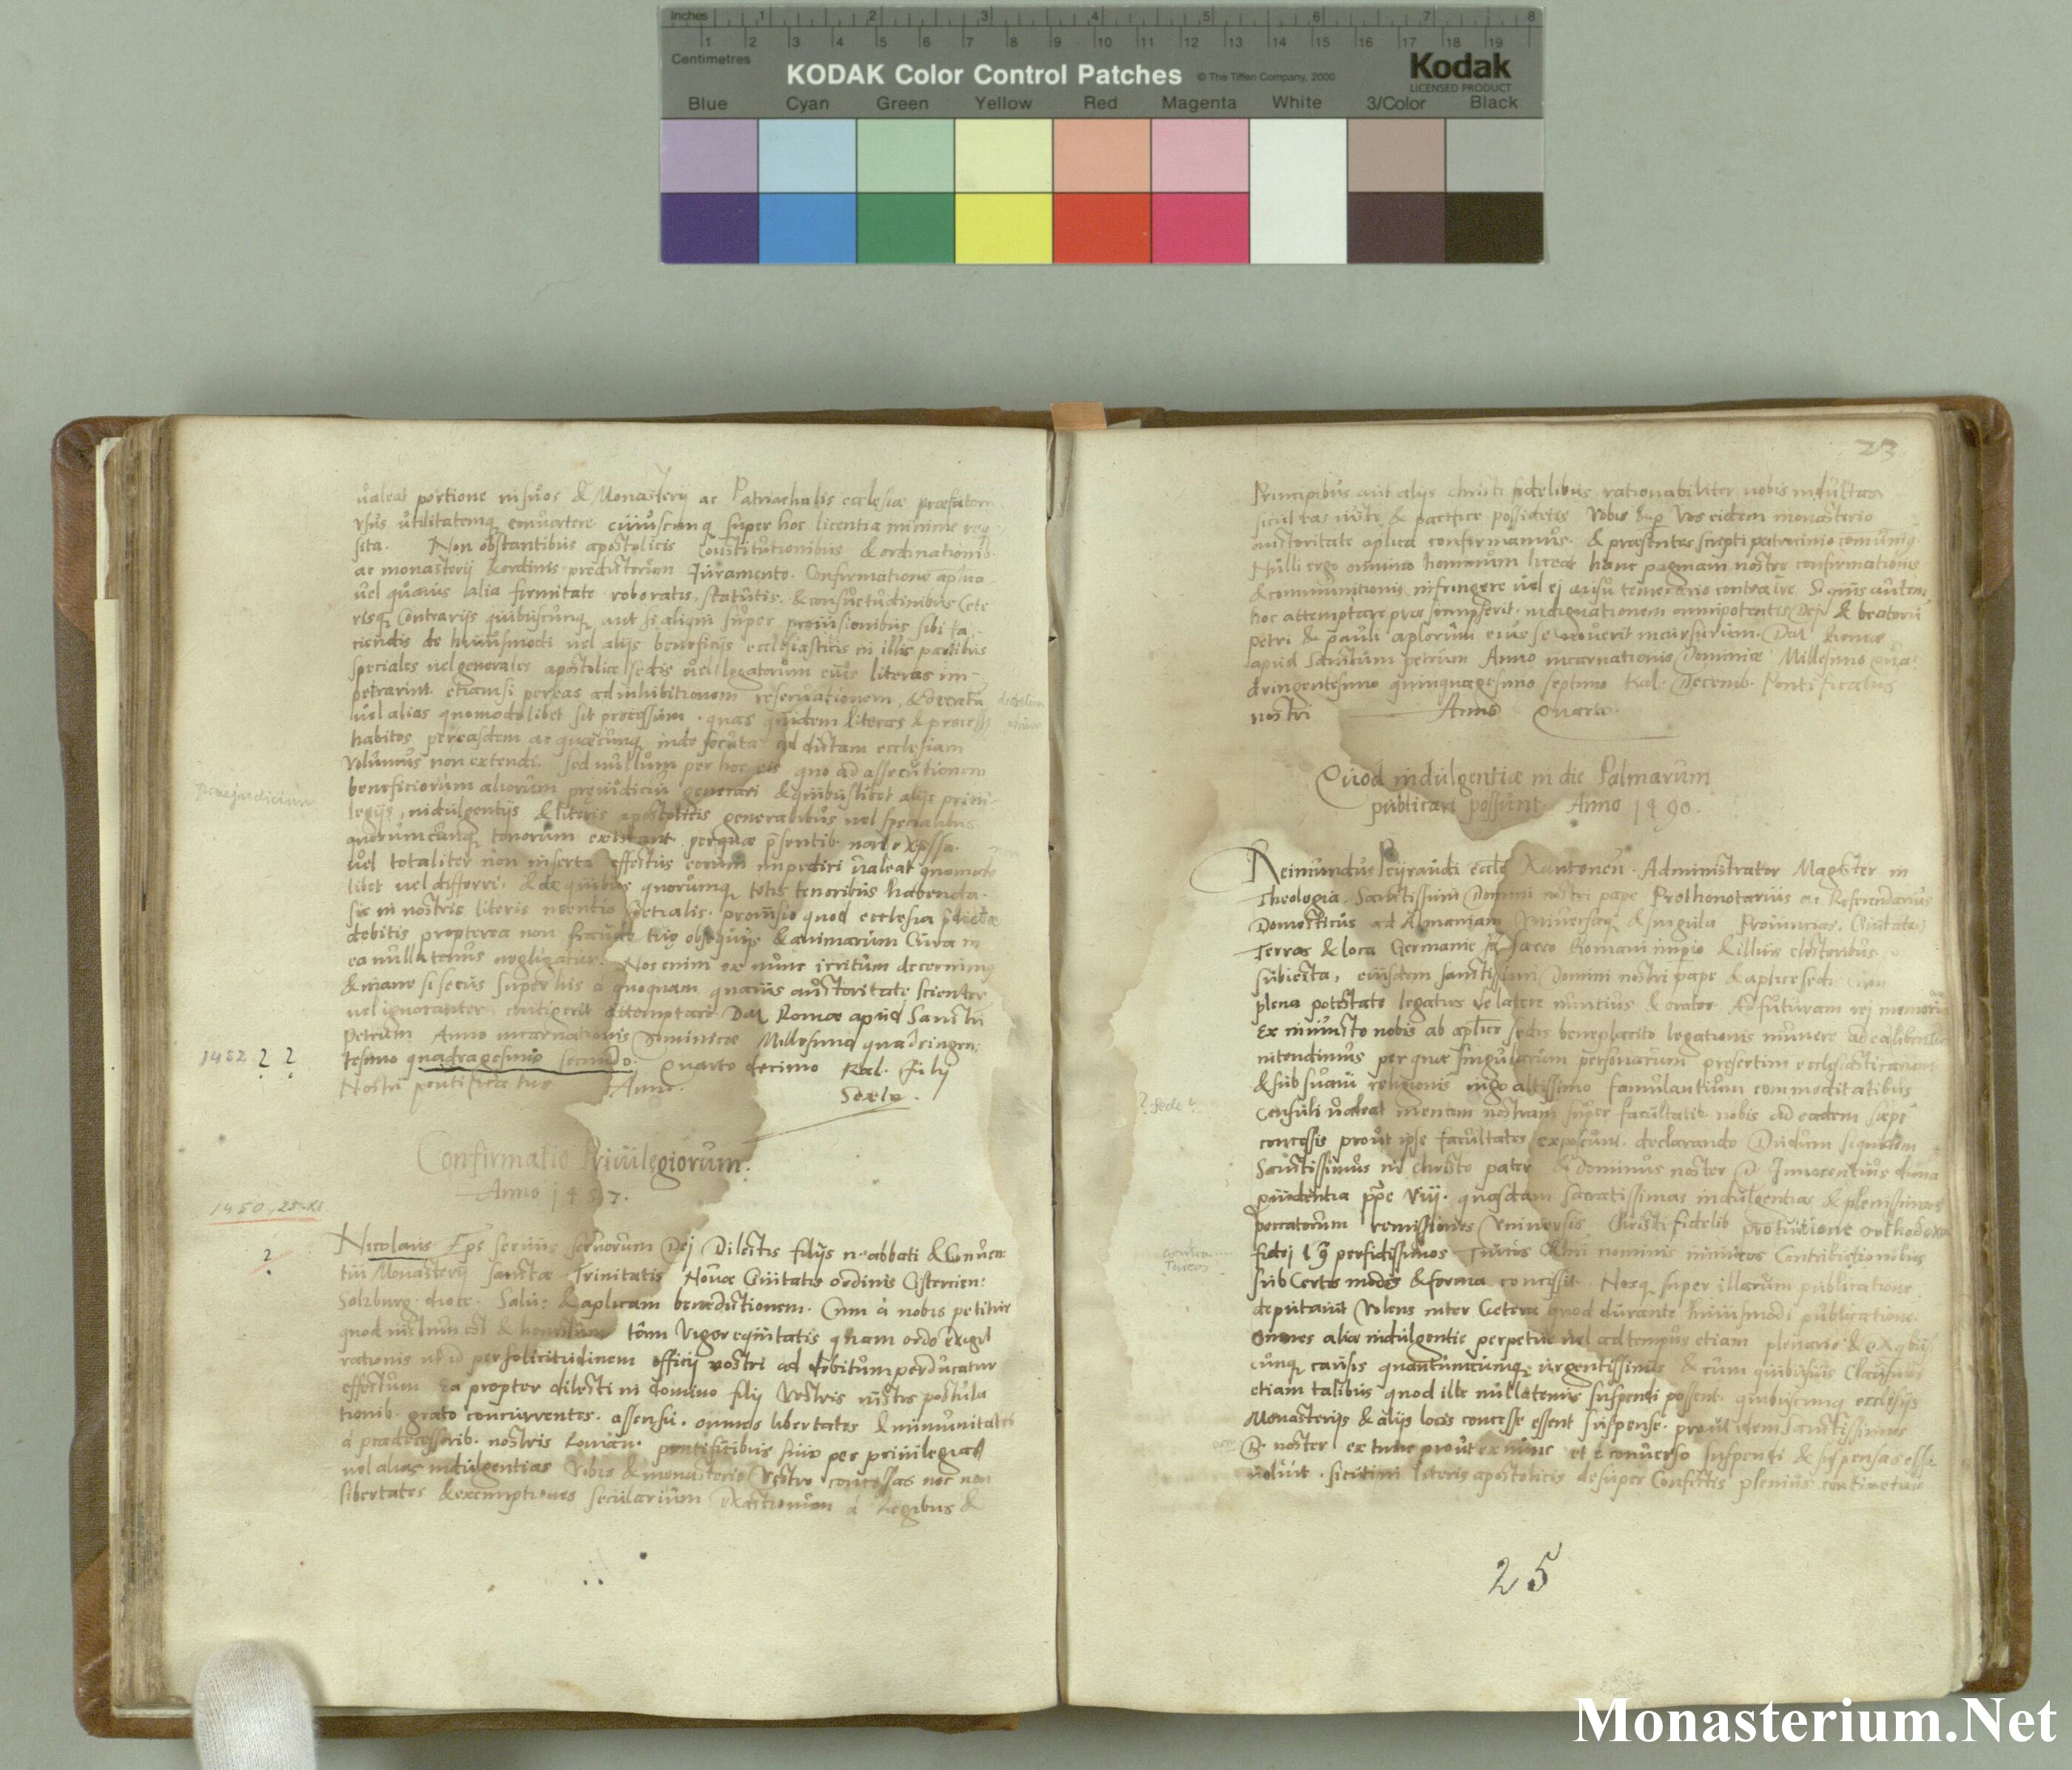 Inches 1 2 3 4 5 6 7 8
1 2 3 4 5 6 7 8 9 10 11 12 13 14 15 16 17 18 19
Centimetres
KODAK Color Control Patches © The Tiffen Company, 2000 Kodak
LICENSED PRODUCT
Blue Cyan Green Yellow Red Magenta White 3/Color Black
valeat portione in suos & Monasterij ac Patriarchalis ecclesiæ præfator
utilitatemq convertere cuiuscunq super hoc licentia minime req
sita. Non obstantibus apostolicis constitutionibus & ordinationib
ac monasterij & ordinis predictorum Juramento. Confirmatione
vel quavis alia firmitate roboratis, statutis & consuetudinibus Cete
risq Contrarijs quibuscunq aut si aliqui super provisionibus sibi fa
ciendis de huiusmodi vel alijs beneficijs ecclesiasticis in illis partibus
speciales vel generales apostolice sedis vel legatorum eius literas im
petrarint etiamsi per eas ad inhibitionem reservationem & decretu
vel alias quomodolibet sit processum quas quidem literas & process
habitos per easdem ac quæcunq inde secuta ad dictam ecclesiam
volumus non extendi. Sed nullum per hoc eis quo ad assecutionem
beneficiorum aliorum preiudiciu generari & quibuslibet alijs privi
præjudicium
legijs, indulgentijs & literis apostolicis generalibus vel specialibus
quorumcunq tenorum existant per quæ
vel totaliter non inserta effectus eorum impediri valeat quomodo
libet vel differri & de quibus quorumq totis tenoribus habenda
sit in nostris literis mentio specialis. proviso quod ecclesia
debitis propterea non fraudetur obsequijs & animarum Cura in
ea nullatenus negligatur. Nos enim ex nunc irritum decernimus
& inane si secus super his a quoquam quavis auctoritate scienter
vel ignoranter contigerit attemptari. Dat Romæ apud Sanctu
Petrum Anno incarnationis Dominicæ Millesimo quadringen
1452 ? ?
tesimo quadragesimo secundo. Quarto decimo Kal. Julij
Nostri pontificatus Anno.
Sexto.
Confirmatio Privilegiorum.
Anno 1457.
1450, 25.XI.
?
Nicolaus Eps servus servorum Dej Dilectis filijs abbati & Conuen
tui Monasterij sanctæ Trinitatis Novæ Civitatis ordinis Cistercien:
Salzburg. Salu: & aplicam benedictionem. Cum à nobis petitur
quod iustum est & honestum tam Vigor equitatis quam ordo exigit
rationis ut id per solicitudinem officij nostri ad debitum perducatur
effectum Ea propter dilecti in domino filij Vestris iustis postula
tionib. grato concurrentes. assensu. omnes libertates & immunitates
à prædecessorib. nostris Roman. pontificibus sive per privilegia
vel alias indulgentias Vobis & monasterio Vestro concessas nec non
libertates & exemptiones secularium exactionum à Regibus &
23
Principibus aut alijs christi fidelibus rationabiliter vobis indultas
sicut eas iuste & pacifice possidetis Vobis & p Vos eidem monasterio
auctoritate aplica confirmamus. & præsentis scripti patrocinio comunig
Nulli ergo omnino hominum liceat hanc paginam nostre confirmationis
& communitionis infringere vel ej ausu temerario contraire. Si quis autem
hoc attemptare præsumpserit. indignationem omnipotentis Dej & beatoru
petri & pauli aplorum eius se noverit incursurum. Dat Romæ
apud Sanctum petrum Anno incarnationis Dominicæ Millesimo qua
dringentesimo quinquagesimo septimo Kal. Decemb. Pontificatus
nostri Anno Quarto.
Quod indulgentiæ in die Palmarum
publicari possunt Anno 1490.
Reimundus Peyraudi eccle Xantonen. Administrator Magister in
Theologia. Sanctissimi Domini nostri pape Prothonotarius ac Referendarius
Domesticus ad Almaniam & singula Provincias. Civitates
Terras & loca Germanie Sacro Romani impio & illius electoribus.
subiecta, eiusdem sanctissimi Domini nostri pape & aplice sedis cum
plena potestate legatus de latere nuncius & orator Ad futuram rej memoria
Ex iniuncto nobis ab sedis beneplacito legationis munere ad ea libenter
intendimus per que singularum personarum presertim ecclesiasticarum
& sub suavi religionis iugo altissimo famulantium commoditatibus
? sede
Consuli valeat mentem nostram super facultatib nobis ad eadem
concessis prout ipse facultates exposcunt. declarando Dudum siquidem
Sanctissimus in christo pater & Dominus noster D. Innocentius
providentia ppe Viij. quasdam sacratissimas indulgentias & plenissimas
peccatorum remissiones Universis Christi fidelib pro tuitione orthodoxe
contra Turcos
fidej perfidissimos nominis inimicos Contributionibus
sub Certis modis & forma concessit. Nosq super illarum publicatione
deputavit Volens inter Cetera quod durante huiusmodi publicatione.
omnes alie indulgentie perpetue vel ad tempus etiam plenarie &
cunq causis quantumcunq urgentissimis & cum quibusvis Clausulis
etiam talibus quod ille nullatenus suspendi possent. quibuscunq ecclesijs
Monasterijs & alijs locis concesse essent suspense. prout idem sanctissimus
D. noster ex tunc prout ex nunc et e converso suspendi & suspensas esse
voluit. sicuti in literis apostolicis desuper Confectis plenius continetur
25
Monasterium.Net